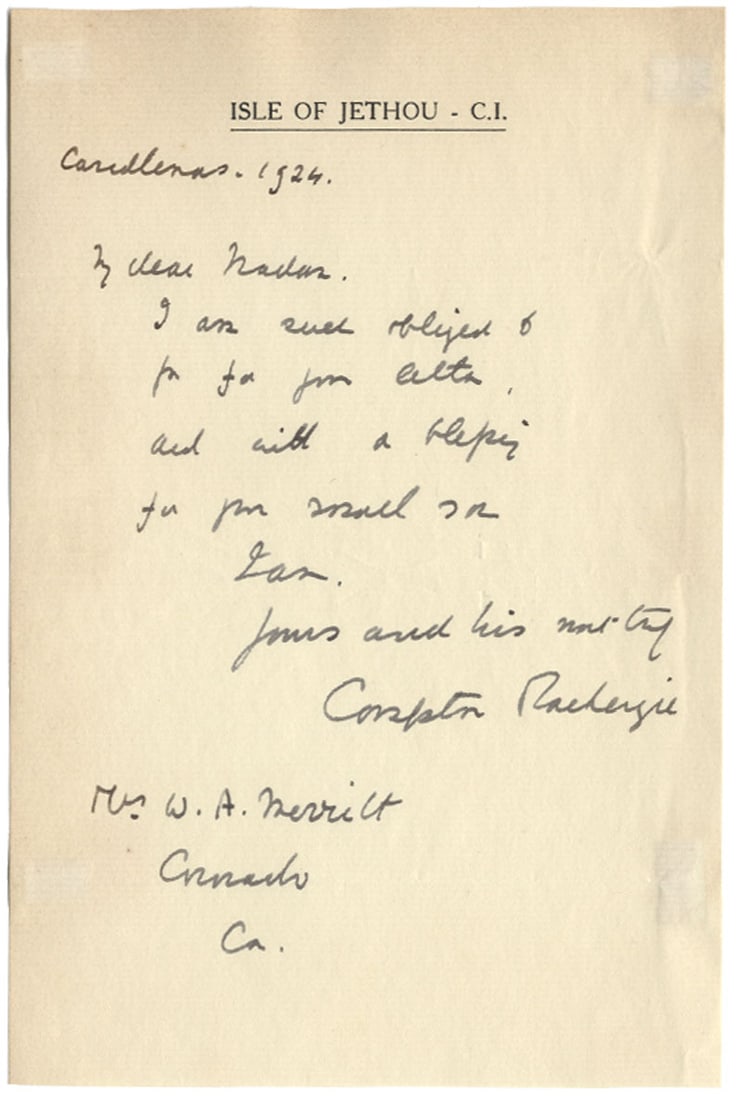 ISLE OF JETHOU - C.I.
Candlemas. 1924.
My dear Madam.
I am much obliged to
you for your letter,
and with a blessing
for your small son
I am.
Yours and his most truly
Compton Mackenzie
Mrs W. A. Merritt
Coronado
Ca.